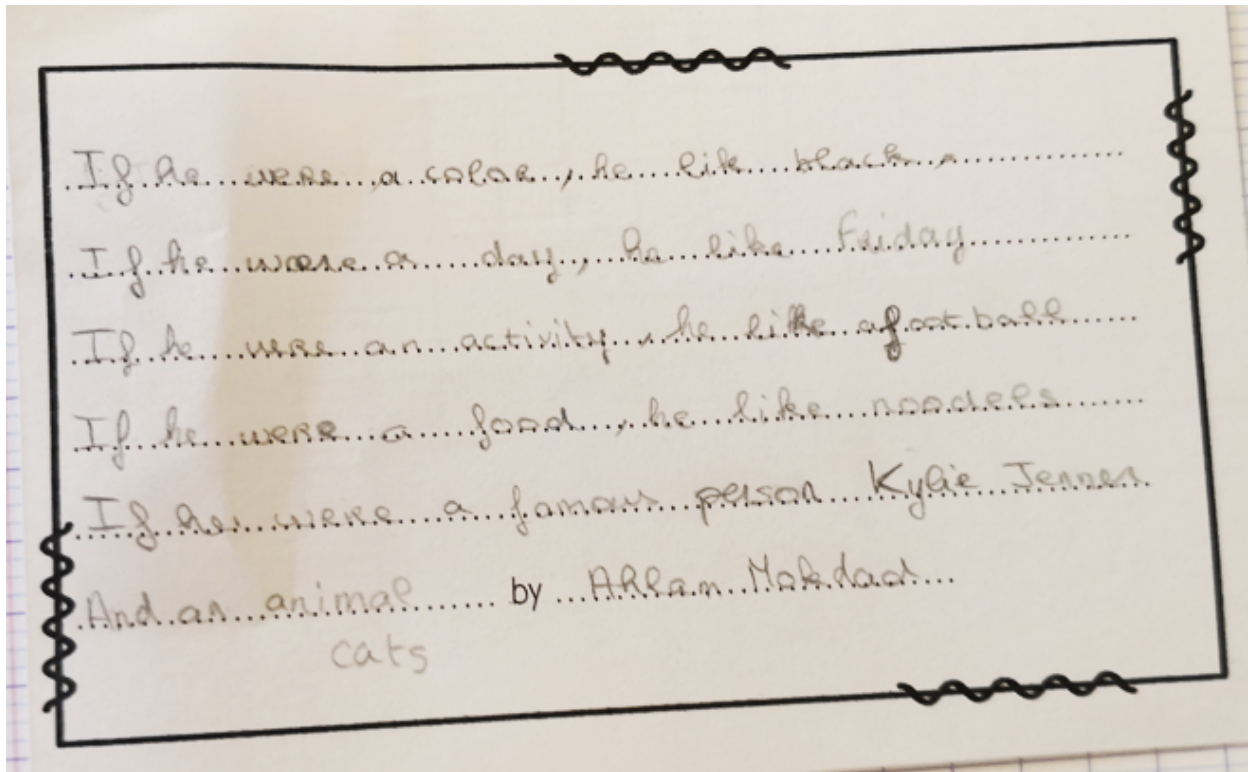 If he were a color, he like black,
If he were a day, he like Friday
If he were an activity, he like a football
If he were a food, he like noodels
If he were a famous person Kylie Jenner
And an animal by Ahlam Mokdad
cats